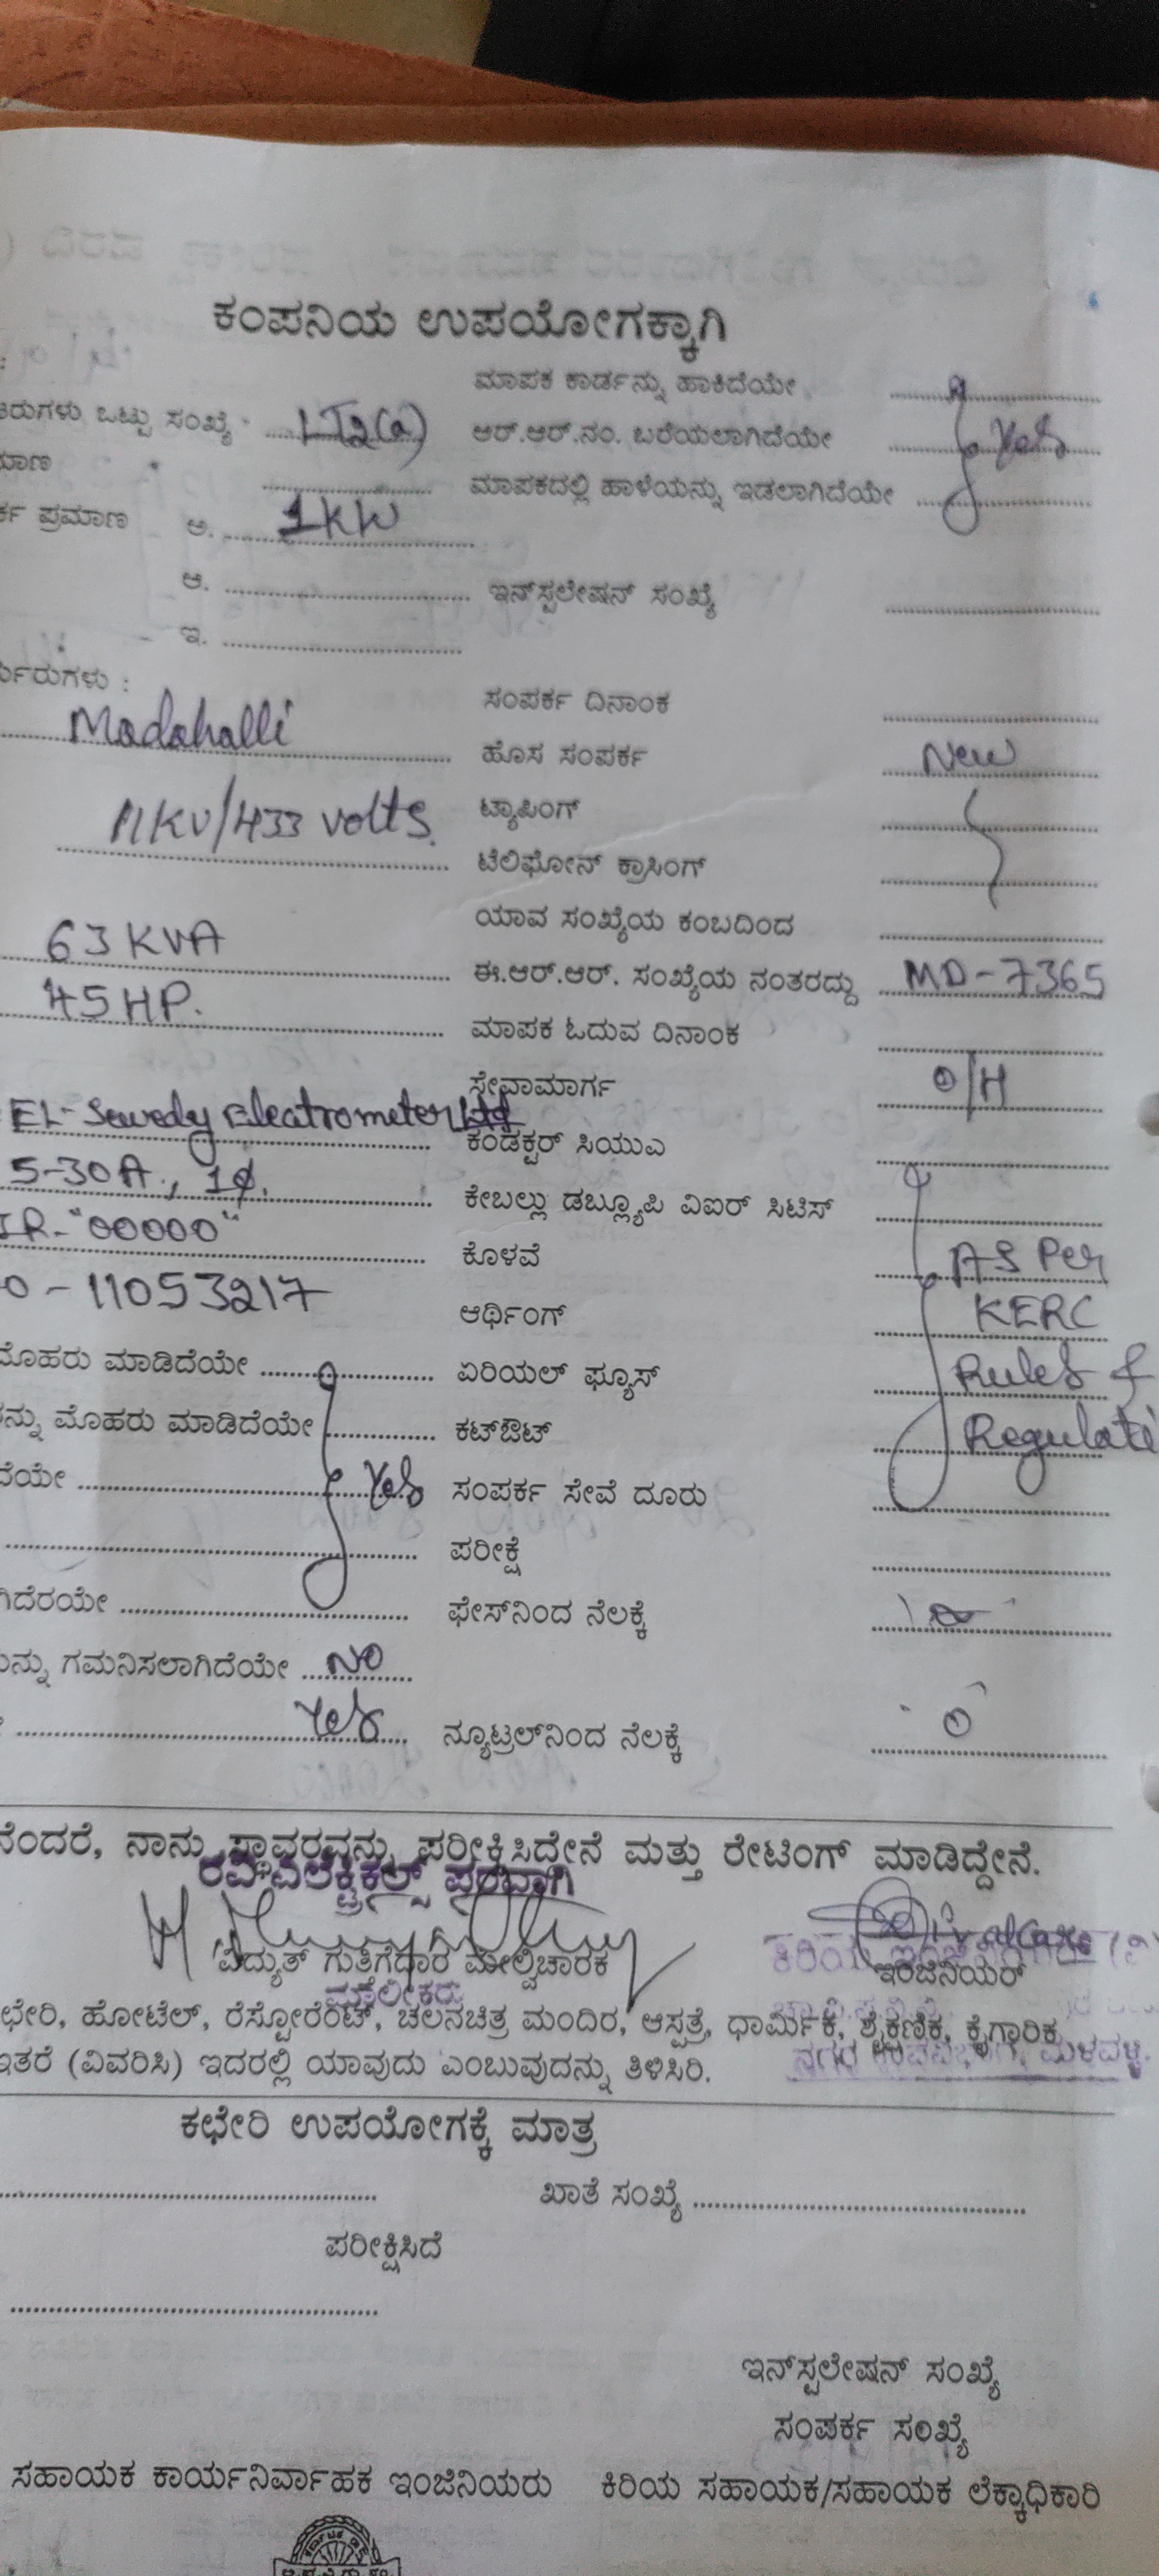 ಕಂಪನಿಯ ಉಪಯೋಗಕ್ಕಾಗಿ
ಮಾಪಕ ಕಾರ್ಡನ್ನು ಹಾಕಿದೆಯೇ
ಒಟ್ಟು ಸಂಖ್ಯೆ LT2(a) ಆರ್.ಆರ್.ನಂ. ಬರೆಯಲಾಗಿದೆಯೇ Yes
ಮಾಪಕದಲ್ಲಿ ಹಾಳೆಯನ್ನು ಇಡಲಾಗಿದೆಯೇ
ಪ್ರಮಾಣ ಅ. 1KW
ಆ. ಇನ್‌ಸ್ಪಲೇಷನ್ ಸಂಖ್ಯೆ
ಇ.
ಸಂಪರ್ಕ ದಿನಾಂಕ
Madahalli ಹೊಸ ಸಂಪರ್ಕ New
11KV/433 volts. ಟ್ಯಾಪಿಂಗ್
ಟೆಲಿಫೋನ್ ಕ್ರಾಸಿಂಗ್
ಯಾವ ಸಂಖ್ಯೆಯ ಕಂಬದಿಂದ
63 KVA ಈ.ಆರ್.ಆರ್. ಸಂಖ್ಯೆಯ ನಂತರದ್ದು MD-7365
45 HP. ಮಾಪಕ ಓದುವ ದಿನಾಂಕ
ಸೇವಾಮಾರ್ಗ O/H
EL-Sewedy Electrometer Ltd ಕಂಡಕ್ಟರ್ ಸಿಯುಎ
5-30A, 1ϕ. ಕೇಬಲ್ಲು ಡಬ್ಲ್ಯೂಪಿ ವಿಐರ್ ಸಿಟಿಸ್
IR-"00000" ಕೊಳವೆ AS Per
11053217 ಆರ್ಥಿಂಗ್ KERC
ಮೊಹರು ಮಾಡಿದೆಯೇ ಏರಿಯಲ್ ಫ್ಯೂಸ್ Rules &
ಮೊಹರು ಮಾಡಿದೆಯೇ ಕಟ್‌ಔಟ್ Regulati
Yes ಸಂಪರ್ಕ ಸೇವೆ ದೂರು
ಪರೀಕ್ಷೆ
ಫೇಸ್‌ನಿಂದ ನೆಲಕ್ಕೆ
ಗಮನಿಸಲಾಗಿದೆಯೇ NO
Yes ನ್ಯೂಟ್ರಲ್‌ನಿಂದ ನೆಲಕ್ಕೆ 0
ನಾನು ಸ್ಥಾವರವನ್ನು ಪರೀಕ್ಷಿಸಿದ್ದೇನೆ ಮತ್ತು ರೇಟಿಂಗ್ ಮಾಡಿದ್ದೇನೆ.
ರವಿ ಎಲೆಕ್ಟ್ರಿಕಲ್ಸ್ ಪರವಾಗಿ
ವಿದ್ಯುತ್ ಗುತ್ತಿಗೆದಾರ ಮೇಲ್ವಿಚಾರಕ ಇಂಜಿನಿಯರ್
ಮಾಲೀಕರು
ಹೋಟೆಲ್, ರೆಸ್ಟೋರೆಂಟ್, ಚಲನಚಿತ್ರ ಮಂದಿರ, ಆಸ್ಪತ್ರೆ, ಧಾರ್ಮಿಕ, ಶೈಕ್ಷಣಿಕ, ಕೈಗಾರಿಕ
ಇತರೆ (ವಿವರಿಸಿ) ಇದರಲ್ಲಿ ಯಾವುದು ಎಂಬುವುದನ್ನು ತಿಳಿಸಿರಿ.
ಕಛೇರಿ ಉಪಯೋಗಕ್ಕೆ ಮಾತ್ರ
ಖಾತೆ ಸಂಖ್ಯೆ
ಪರೀಕ್ಷಿಸಿದೆ
ಇನ್‌ಸ್ಪಲೇಷನ್ ಸಂಖ್ಯೆ
ಸಂಪರ್ಕ ಸಂಖ್ಯೆ
ಸಹಾಯಕ ಕಾರ್ಯನಿರ್ವಾಹಕ ಇಂಜಿನಿಯರು ಕಿರಿಯ ಸಹಾಯಕ/ಸಹಾಯಕ ಲೆಕ್ಕಾಧಿಕಾರಿ